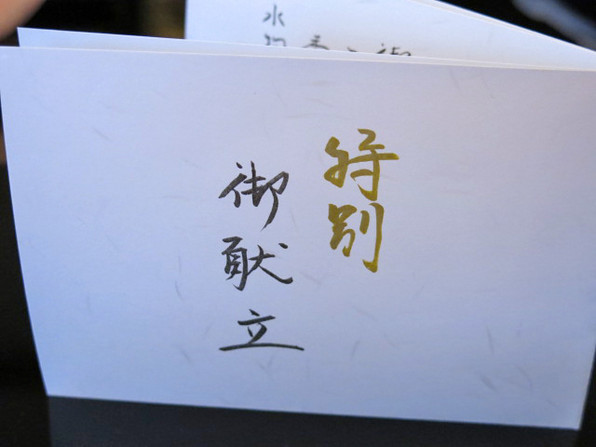 特別
御献立
水